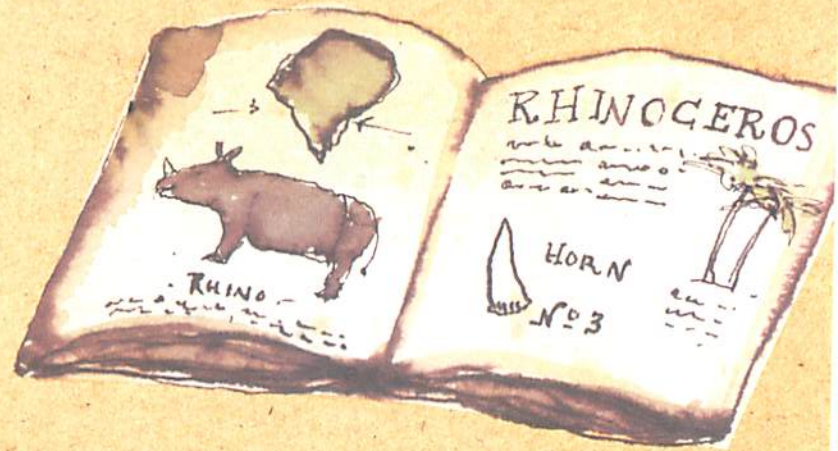 RHINO
RHINOCEROS
HORN
Nº 3